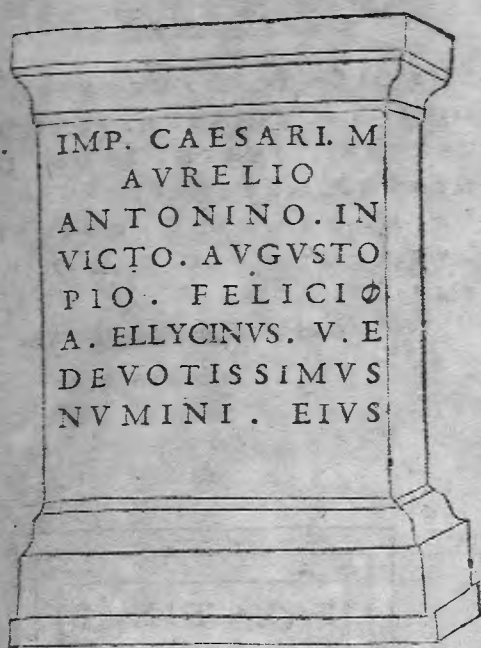 IMP. CAESARI. M
AVRELIO
ANTONINO. IN
VICTO. AVGVSTO
PIO. FELICI Φ
A. ELLYCINVS. V. E
DEVOTISSIMVS
NVMINI. EIVS